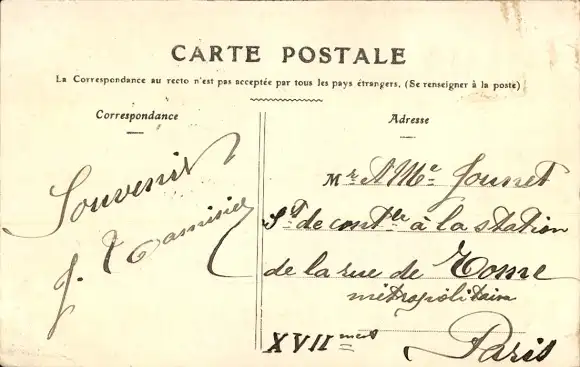 CARTE POSTALE
La Correspondance au recto n'est pas acceptée par tous les pays étrangers. (Se renseigner à la poste)
Correspondance
Adresse
Souvenir
J. Tamisier
Mr & Me Jounet
St de contle à la station
de la rue de Rome
métropolitain
XVII ment
Paris